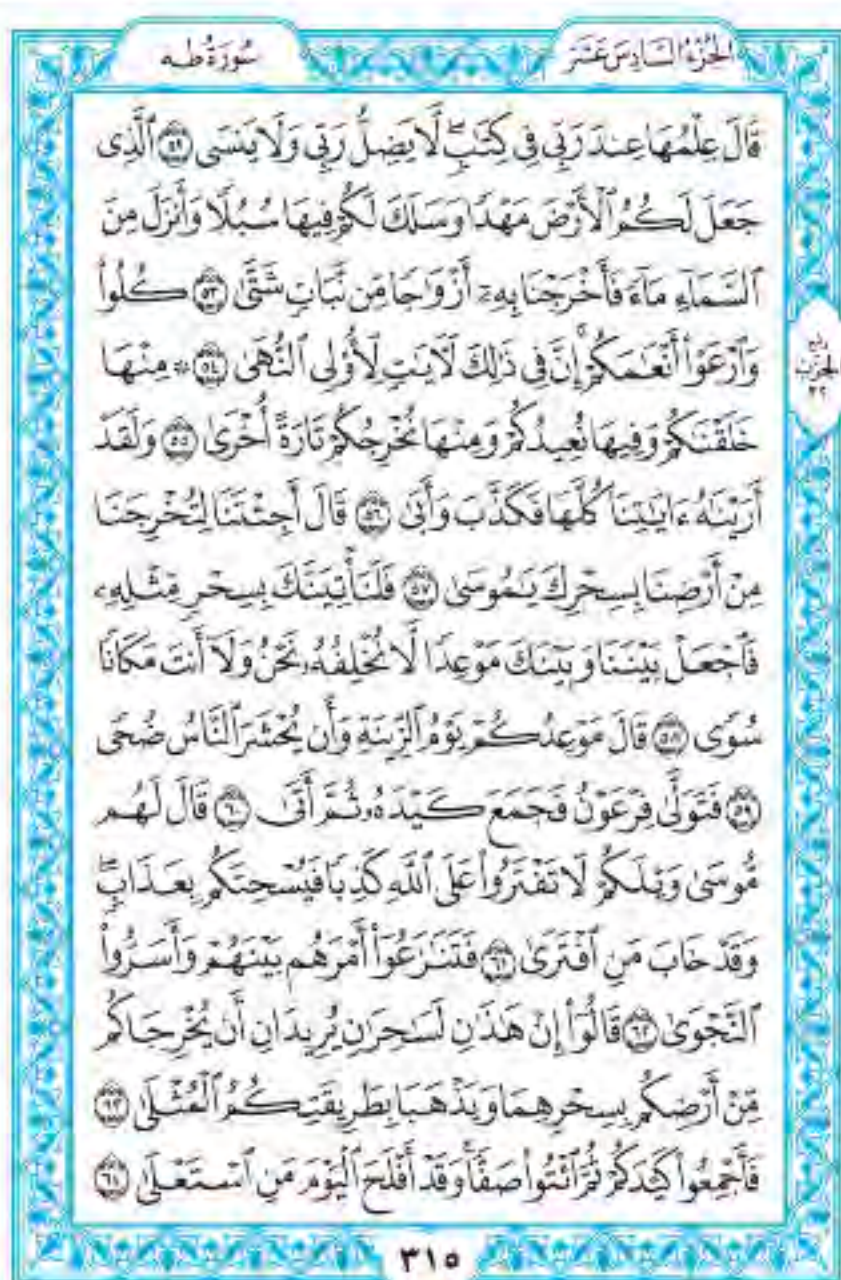 الجُزْءُ السَّادِسَ عَشَرَ
سُورَةُ طه
قَالَ عِلْمُهَا عِندَ رَبِّي فِي كِتَٰبٍۖ لَّا يَضِلُّ رَبِّي وَلَا يَنسَى ٥٢ ٱلَّذِي
جَعَلَ لَكُمُ ٱلْأَرْضَ مَهْدًا وَسَلَكَ لَكُمْ فِيهَا سُبُلًا وَأَنزَلَ مِنَ
ٱلسَّمَآءِ مَآءً فَأَخْرَجْنَا بِهِۦٓ أَزْوَٰجًا مِّن نَّبَاتٍ شَتَّىٰ ٥٣ كُلُوا۟
وَٱرْعَوْا۟ أَنْعَٰمَكُمْۗ إِنَّ فِي ذَٰلِكَ لَءَايَٰتٍ لِّأُو۟لِي ٱلنُّهَىٰ ٥٤ ۞ مِنْهَا
خَلَقْنَٰكُمْ وَفِيهَا نُعِيدُكُمْ وَمِنْهَا نُخْرِجُكُمْ تَارَةً أُخْرَىٰ ٥٥ وَلَقَدْ
أَرَيْنَٰهُ ءَايَٰتِنَا كُلَّهَا فَكَذَّبَ وَأَبَىٰ ٥٦ قَالَ أَجِئْتَنَا لِتُخْرِجَنَا
مِنْ أَرْضِنَا بِسِحْرِكَ يَٰمُوسَىٰ ٥٧ فَلَنَأْتِيَنَّكَ بِسِحْرٍ مِّثْلِهِۦ
فَٱجْعَلْ بَيْنَنَا وَبَيْنَكَ مَوْعِدًا لَّا نُخْلِفُهُۥ نَحْنُ وَلَآ أَنتَ مَكَانًا
سُوًى ٥٨ قَالَ مَوْعِدُكُمْ يَوْمُ ٱلزِّينَةِ وَأَن يُحْشَرَ ٱلنَّاسُ ضُحًى
٥٩ فَتَوَلَّىٰ فِرْعَوْنُ فَجَمَعَ كَيْدَهُۥ ثُمَّ أَتَىٰ ٦٠ قَالَ لَهُم
مُّوسَىٰ وَيْلَكُمْ لَا تَفْتَرُوا۟ عَلَى ٱللَّهِ كَذِبًا فَيُسْحِتَكُم بِعَذَابٍۖ
وَقَدْ خَابَ مَنِ ٱفْتَرَىٰ ٦١ فَتَنَٰزَعُوٓا۟ أَمْرَهُم بَيْنَهُمْ وَأَسَرُّوا۟
ٱلنَّجْوَىٰ ٦٢ قَالُوٓا۟ إِنْ هَٰذَٰنِ لَسَٰحِرَٰنِ يُرِيدَانِ أَن يُخْرِجَاكُم
مِّنْ أَرْضِكُم بِسِحْرِهِمَا وَيَذْهَبَا بِطَرِيقَتِكُمُ ٱلْمُثْلَىٰ ٦٣
فَأَجْمِعُوا۟ كَيْدَكُمْ ثُمَّ ٱئْتُوا۟ صَفًّاۚ وَقَدْ أَفْلَحَ ٱلْيَوْمَ مَنِ ٱسْتَعْلَىٰ ٦٤
ربع
الحزب
٣٢
٣١٥